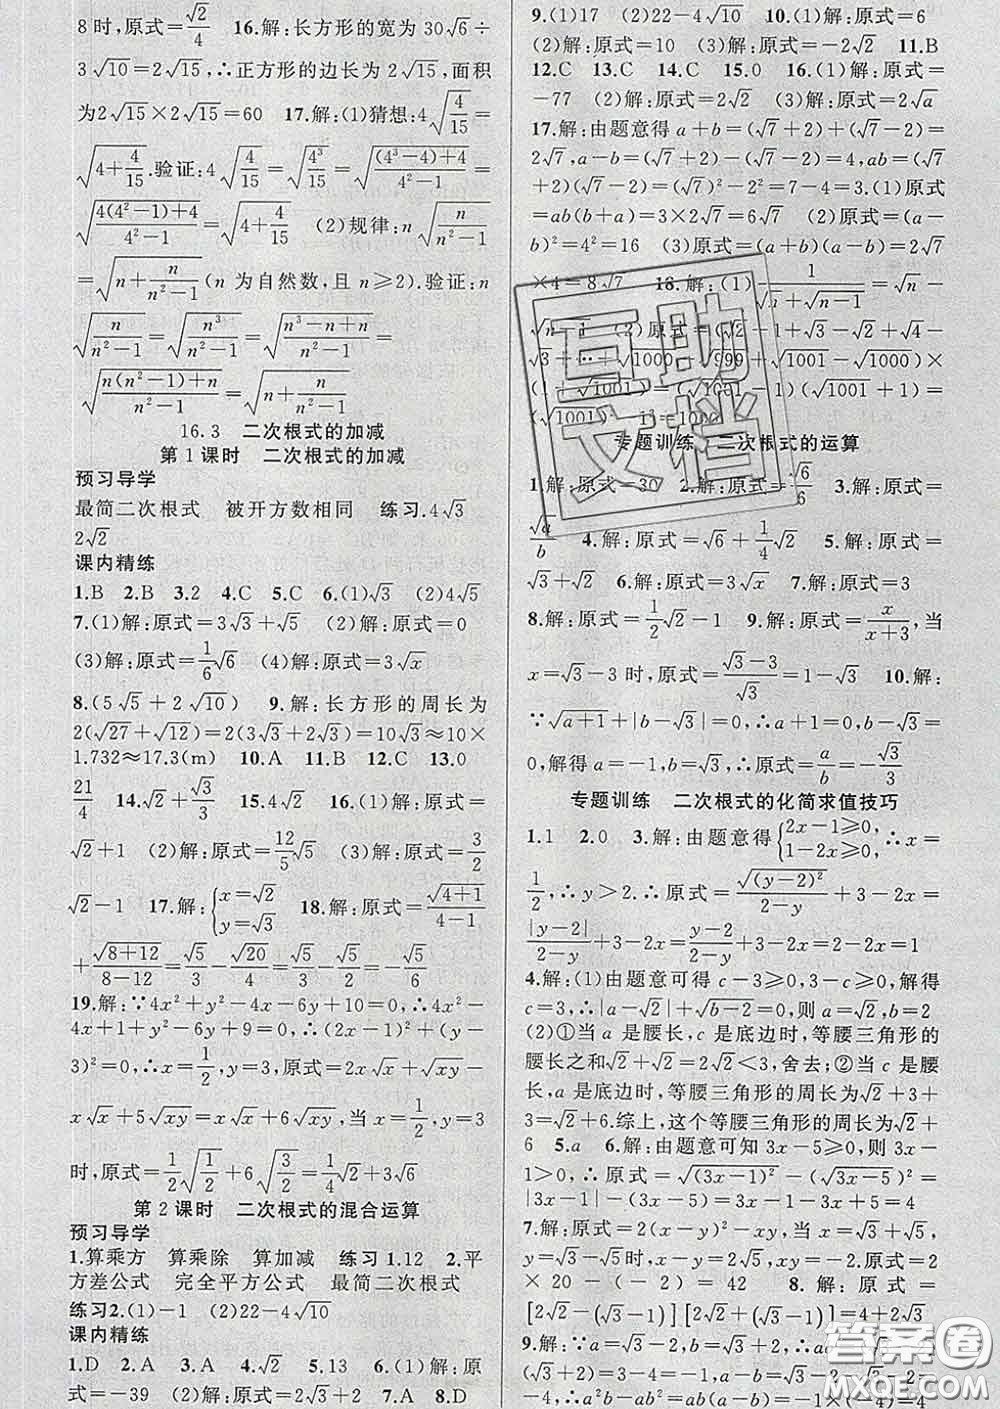 8时,原式=√2/4  16.解:长方形的宽为30√6÷
3√10=2√15,∴正方形的边长为2√15,面积
为2√15×2√15=60  17.解:(1)猜想:4√(4/15)=
√(4+4/15).验证:4√(4/15)=√(4³/15)=√(((4³-4)+4)/(4²-1))=
√((4(4²-1)+4)/(4²-1))=√(4+4/15)  (2)规律:n√(n/(n²-1))
=√(n+n/(n²-1))(n为自然数,且n≥2).验证:n
√(n/(n²-1))=√(n³/(n²-1))=√((n³-n+n)/(n²-1))
=√((n(n²-1)+n)/(n²-1))=√(n+n/(n²-1))
16.3  二次根式的加减
第1课时  二次根式的加减
预习导学
最简二次根式  被开方数相同  练习.4√3
2√2
课内精练
1.B  2.B  3.2  4.C  5.C  6.(1)√3  (2)4√5
7.(1)解:原式=3√3+√5  (2)解:原式=0
(3)解:原式=1/6√6  (4)解:原式=3√x
8.(5√5+2√10)  9.解:长方形的周长为
2(√27+√12)=2(3√3+2√3)=10√3≈10×
1.732≈17.3(m)  10.A  11.B  12.C  13.0
21/4  14.√2+√3/3  15.4√2  16.(1)解:原式=
√2+1  (2)解:原式=12/5√5  (3)解:原式=3/2
√2-1  17.解:{x=√2 y=√3  18.解:原式=√(4+1)/(4-1)
+√(8+12)/(8-12)=√5/3-√20/4=√5/3-√5/2=-√5/6
19.解:∵4x²+y²-4x-6y+10=0,∴4x²-
4x+1+y²-6y+9=0,∴(2x-1)²+(y-
3)²=0,∴x=1/2,y=3,原式=2x√x+√(xy)-
x√x+5√(xy)=x√x+6√(xy),当x=1/2,y=3
时,原式=1/2√(1/2)+6√(3/2)=1/4√2+3√6
第2课时  二次根式的混合运算
预习导学
1.算乘方  算乘除  算加减  练习1.12  2.平
方差公式  完全平方公式  最简二次根式
练习2.(1)-1  (2)22-4√10
课内精练
1.D  2.A  3.A  4.√2  5.13  6.(1)解:原
式=-39  (2)解:原式=2√3+2  7.A  8.D
9.(1)17  (2)22-4√10  10.(1)解:原式=6
(2)解:原式=6  (3)解:原式=-2√2  11.B
12.C  13.C  14.C  15.0  16.(1)解:原式=
-77  (2)解:原式=2√2  (3)解:原式=2√a
17.解:由题意得a+b=(√7+2)+(√7-2)=
2√7,a-b=(√7+2)-(√7-2)=4,ab=(√7
+2)(√7-2)=(√7)²-2²=7-4=3.(1)原式
=ab(b+a)=3×2√7=6√7  (2)原式=(a-
b)²=4²=16  (3)原式=(a+b)(a-b)=2√7
×4=8√7  18.解:(1)1/(√n+√(n-1))=√n-
√(n-1)  (2)原式=(√2-1+√3-√2+√4-
√3+…+√1000-√999+√1001-√1000)×
(√1001+1)=(√1001-1)(√1001+1)=
(√1001)²-1²=1000
专题训练  二次根式的运算
1.解:原式=30  2.解:原式=√6/6  3.解:原式=
√a/b  4.解:原式=√6+1/4√2  5.解:原式=
√3+√2  6.解:原式=3√x  7.解:原式=3
8.解:原式=1/2√2-1  9.解:原式=x/(x+3),当
x=√3-3时,原式=(√3-3)/√3=1-√3  10.解:
∵√(a+1)+|b-√3|=0,∴a+1=0,b-√3=
0,解得a=-1,b=√3,∴原式=a/b=-√3/3
专题训练  二次根式的化简求值技巧
1.1  2.0  3.解:由题意得{2x-1≥0, 1-2x≥0,∴x=
1/2,∴y>2.∴原式=√((y-2)²)/(2-y)+3-2x=
|y-2|/(2-y)+3-2x=(y-2)/(2-y)+3-2x=2-2x=1
4.解:(1)由题意可得c-3≥0,3-c≥0,解得
c=3,∴|a-√2|+√(b-2)=0,则a=√2,b=2
(2)①当a是腰长,c是底边时,等腰三角形的
腰长之和√2+√2=2√2<3,舍去;②当c是腰
长,a是底边时,等腰三角形的周长为√2+3+
3=√2+6.综上,这个等腰三角形的周长为√2+
6  5.a  6.解:由题意可知3x-5≥0,则
1-3x<0,∴原式=√((3x-1)²)-√((3x-5)²)=
|3x-1|-|3x-5|=3x-1-3x+5=4
7.解:原式=2(x-y)²-xy,当x=√5+√3,
y=√3-√5时,x-y=2√5,xy=-2.原式=2
×20-(-2)=42  8.解:原式=
[2√2-(√3-1)][2√2+(√3-1)]=4+2√3
9.解:∵a=√3-2,b=√3+2,∴a-b=
(√3-2)-(√3+2)=-4,ab=(√3-2)(√3+2)=
-1,∴a²b-ab²=ab(a-b)=(-1)×(-4)=4
互助
文档
答案圈
MXQE.COM